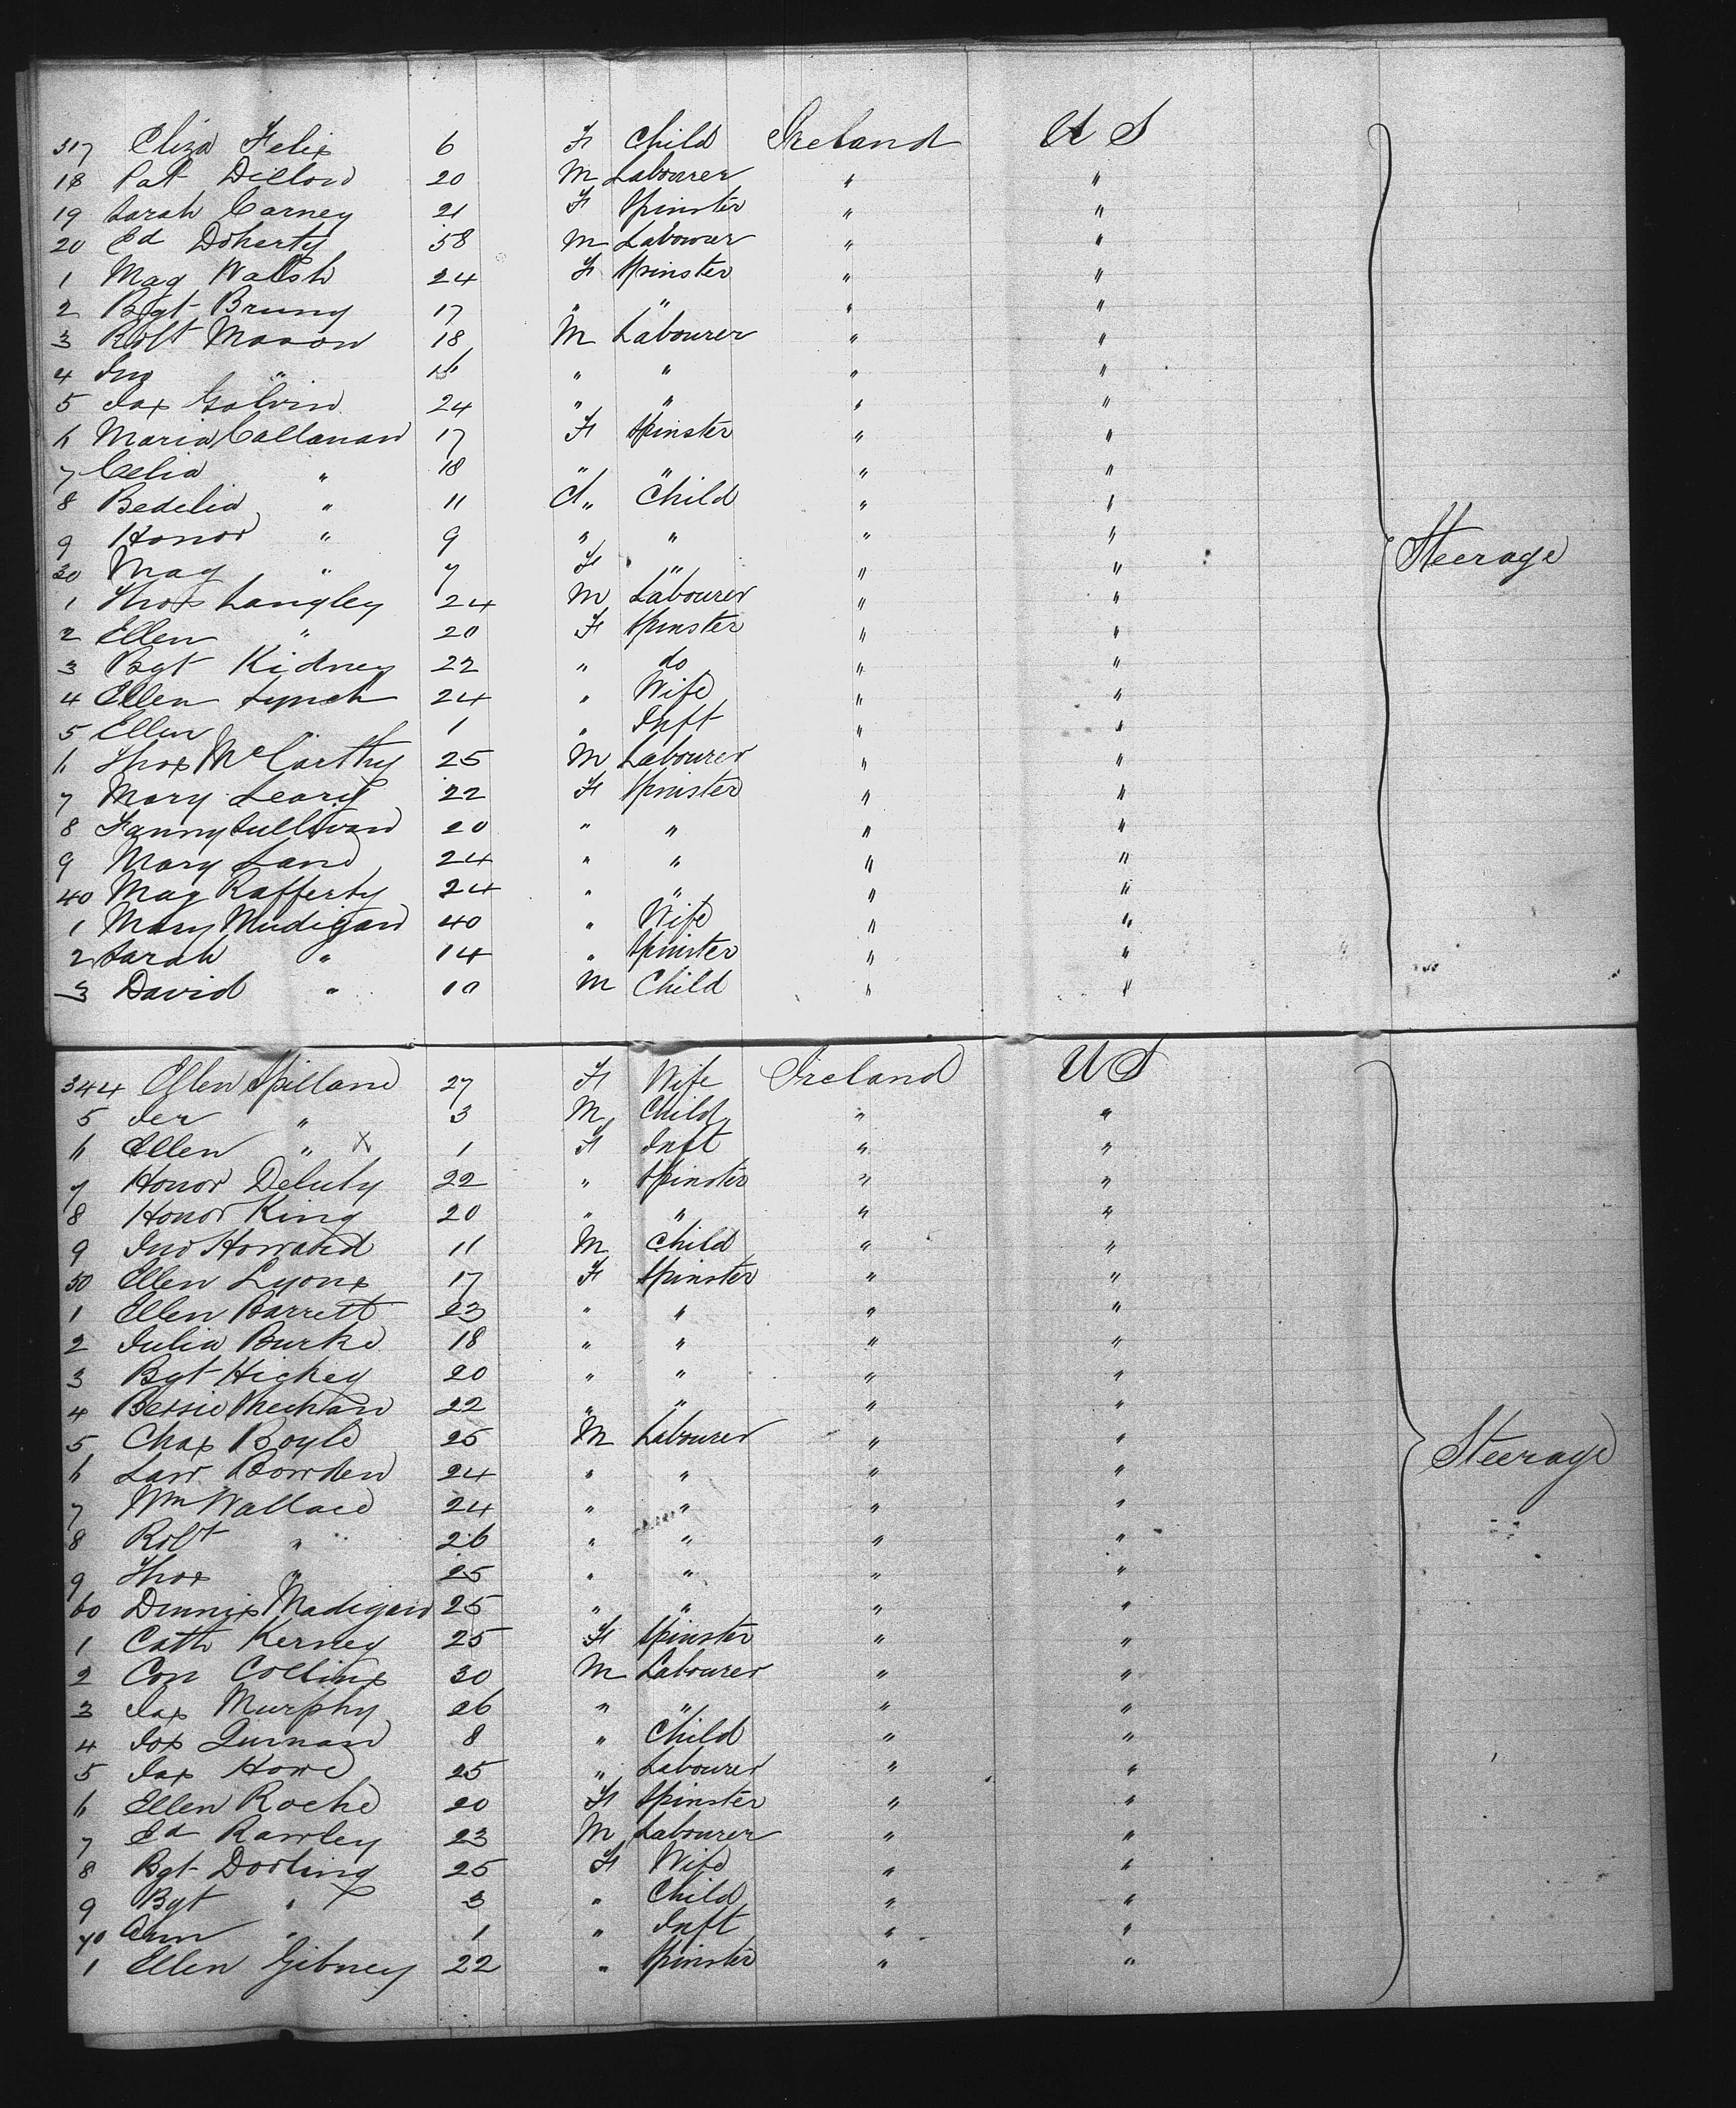 317 Eliza Felix 6 F Child Ireland U S
18 Pat Dillon 20 M Labourer " "
19 Sarah Carney 21 F Spinster " "
20 Ed Doherty 58 M Labourer " "
1 Mag Walsh 24 F Spinster " "
2 Bgt Bruny 17 " " " "
3 Robt Mason 18 M Labourer " "
4 Jno " " " " "
5 Jas Galvin 24 " " " "
6 Maria Callanan 17 F Spinster " "
7 Celia " 18 " " " "
8 Bedelia " 11 " Child " "
9 Honor " 9 " " " "
30 Mag " 7 F " " "
1 Thos Langley 24 M Labourer " "
2 Ellen " 20 F Spinster " "
3 Bgt Kidney 22 " do " "
4 Ellen Lynch 24 " Wife " "
5 Ellen 1 " Inft " "
6 Thos McCarthy 25 M Labourer " "
7 Mary Leary 22 F Spinster " "
8 Fanny Sullivan 20 " " " "
9 Mary Lane 24 " " " "
40 Mag Rafferty 24 " " " "
1 Mary Mudigan 40 " Wife " "
2 Sarah " 14 " Spinster " "
3 David " 10 M Child " "
Steerage
344 Ellen Spillane 27 F Wife Ireland U S
5 Jer " 3 M Child " "
6 Ellen " X 1 F Inft " "
7 Honor Deluty 22 " Spinster " "
8 Honor King 20 " " " "
9 Jno Howard 11 M Child " "
50 Ellen Lyons 17 F Spinster " "
1 Ellen Barrett 23 " " " "
2 Julia Burke 18 " " " "
3 Bgt Hickey 20 " " " "
4 Bessie Meehan 22 " " " "
5 Chas Boyle 25 M Labourer " "
6 Law Bowden 24 " " " "
7 Wm Wallace 24 " " " "
8 Robt " 26 " " " "
9 Thos " 25 " " " "
60 Dennis Madigan 25 " " " "
1 Cath Kerney 25 F Spinster " "
2 Con Collins 30 M Labourer " "
3 Jas Murphy 26 " " " "
4 Jos Quinan 8 " Child " "
5 Jas Howe 25 " Labourer " "
6 Ellen Roche 20 F Spinster " "
7 Ed Rawley 23 M Labourer " "
8 Bgt Dorling 25 F Wife " "
9 Bgt " 3 " Child " "
70 Ann " 1 " Inft " "
1 Ellen Gibney 22 " Spinster " "
Steerage